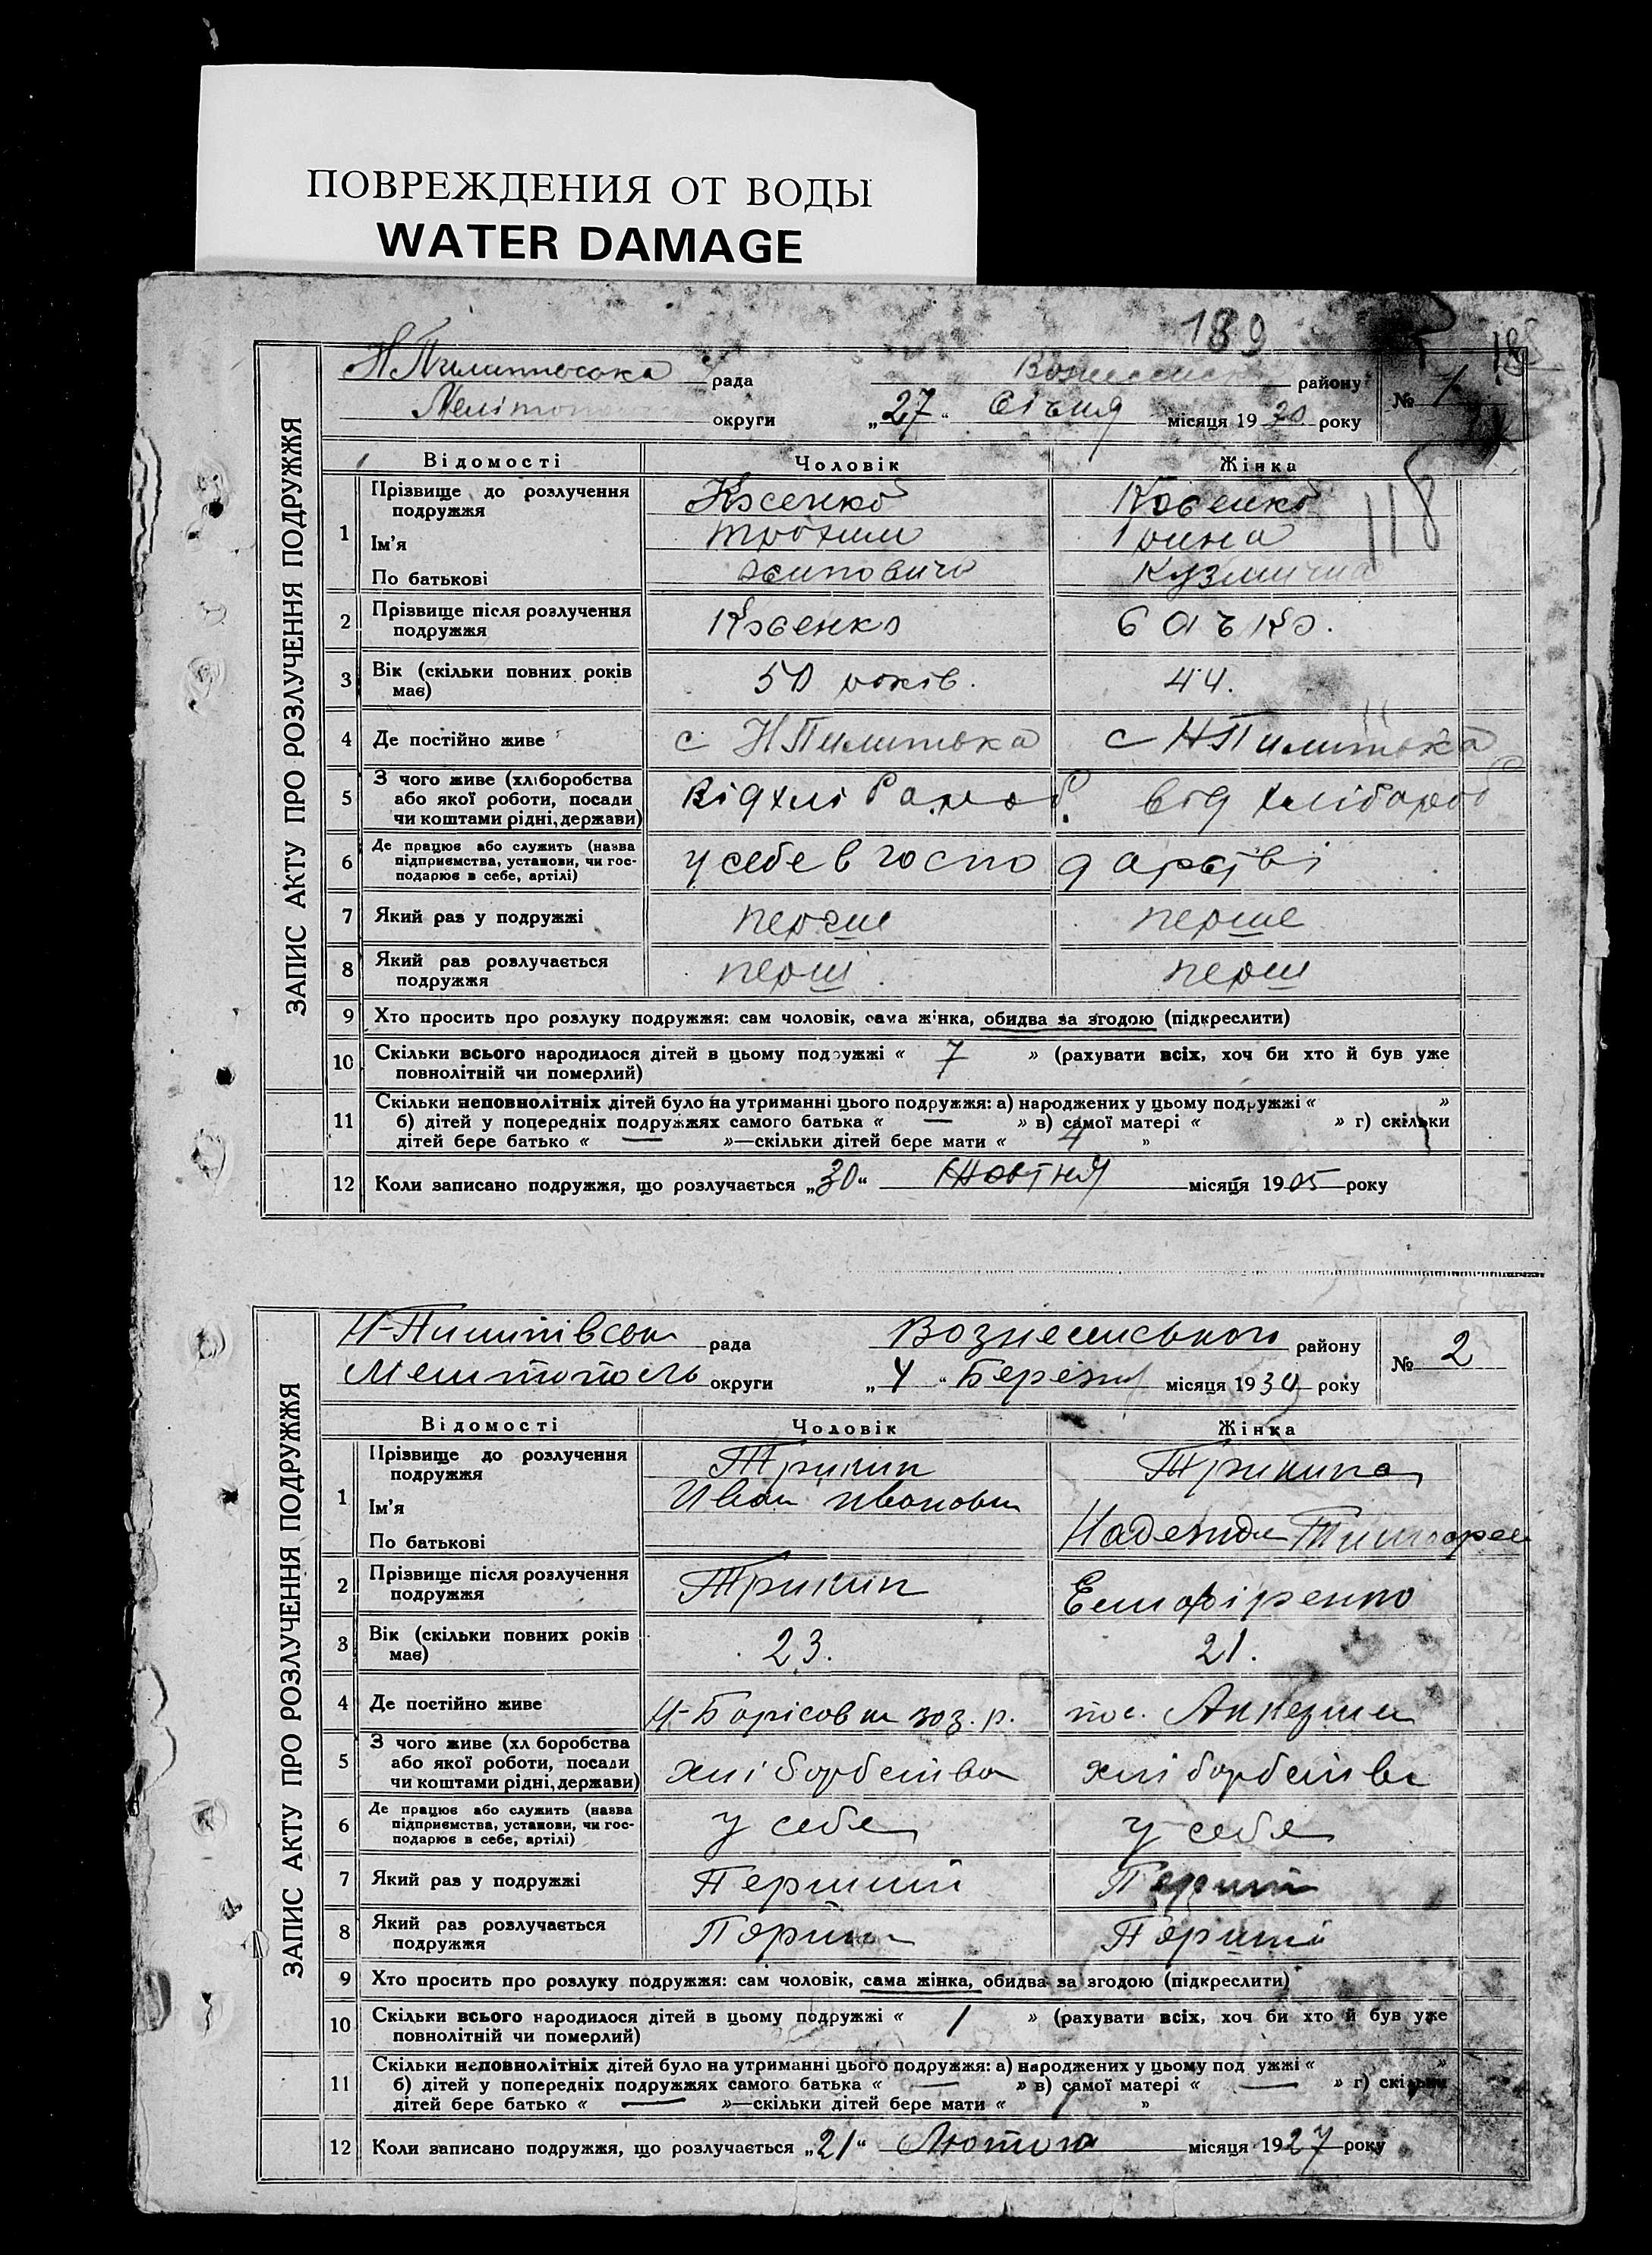 ПОВРЕЖДЕНИЯ ОТ ВОДЫ
WATER DAMAGE
189
ЗАПИС АКТУ ПРО РОЗЛУЧЕННЯ ПОДРУЖЖЯ
рада району № 1
округи „27“ Січня місяця 1930 року
Відомості Чоловік Жінка
118
1 Прізвище до розлучення Косенко Косенко
подружжя
Ім'я Трохим
По батькові Кузмична
2 Прізвище після розлучення Косенко
подружжя
3 Вік (скільки повних років 50 років. 44.
має)
4 Де постійно живе с Н Пилипівка с Н Пилипівка
5 З чого живе (хліборобства
або якої роботи, посади від хлібороб. від хлібороб
чи коштами рідні, держави)
6 Де працює або служить (назва
підприємства, установи, чи гос- у себе в господарстві
подарює в себе, артілі)
7 Який раз у подружжі перше перше
8 Який раз розлучається перш перш
подружжя
9 Хто просить про розлуку подружжя: сам чоловік, сама жінка, обидва за згодою (підкреслити)
10 Скільки всього народилося дітей в цьому подружжі « 7 » (рахувати всіх, хоч би хто й був уже
повнолітній чи померлий)
11 Скільки неповнолітніх дітей було на утриманні цього подружжя: а) народжених у цьому подружжі « »
б) дітей у попередніх подружжях самого батька « — » в) самої матері « » г) скільки
дітей бере батько « — »—скільки дітей бере мати « 4 »
12 Коли записано подружжя, що розлучається „30“ Жовтня місяця 1905 року
ЗАПИС АКТУ ПРО РОЗЛУЧЕННЯ ПОДРУЖЖЯ
рада Вознесенського району № 2
Мелитополь округи „4“ Березня місяця 1930 року
Відомості Чоловік Жінка
1 Прізвище до розлучення Трикин Трикина
подружжя
Ім'я Иван Иванович
По батькові Надежда
2 Прізвище після розлучення Трикин
подружжя
3 Вік (скільки повних років 23. 21.
має)
4 Де постійно живе Н-Борісовка воз. р. пос.
5 З чого живе (хліборобства
або якої роботи, посади
чи коштами рідні, держави)
6 Де працює або служить (назва
підприємства, установи, чи гос- у себе у себе
подарює в себе, артілі)
7 Який раз у подружжі Перший Перший
8 Який раз розлучається Перший Перший
подружжя
9 Хто просить про розлуку подружжя: сам чоловік, сама жінка, обидва за згодою (підкреслити)
10 Скільки всього народилося дітей в цьому подружжі « 1 » (рахувати всіх, хоч би хто й був уже
повнолітній чи померлий)
11 Скільки неповнолітніх дітей було на утриманні цього подружжя: а) народжених у цьому подружжі « »
б) дітей у попередніх подружжях самого батька « — » в) самої матері « — » г) скільки
дітей бере батько « — »—скільки дітей бере мати « 1 »
12 Коли записано подружжя, що розлучається „21“ Лютого місяця 1927 року